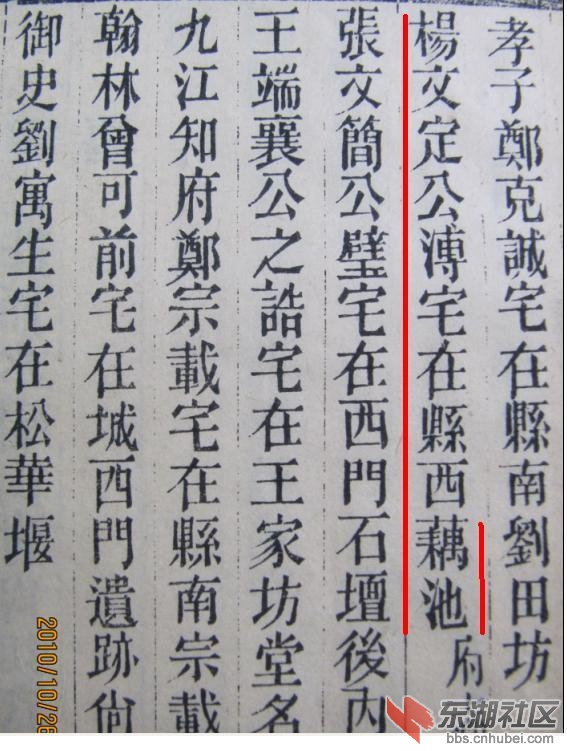 孝子鄭克誠宅在縣南劉田坊
楊文定公溥宅在縣西藕池府
張文簡公璧宅在西門石壇後內
王端襄公之誥宅在王家坊堂名
九江知府鄭宗載宅在縣南宗載
翰林曾可前宅在城西門遺跡尙
御史劉寓生宅在松華堰
2010/10/26
东湖社区
bbs.cnhubei.com